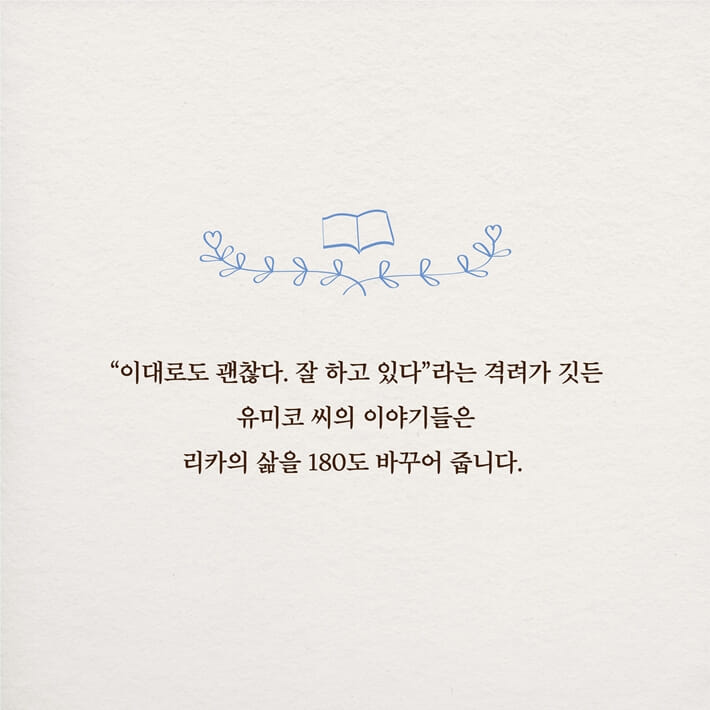 “이대로도 괜찮다. 잘 하고 있다”라는 격려가 깃든
유미코 씨의 이야기들은
리카의 삶을 180도 바꾸어 줍니다.